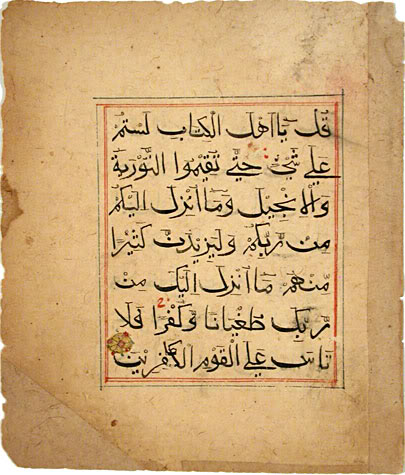 قل يا اهل الكتاب لستم
على شئ حتى تقيموا التورية
والانجيل وما انزل اليكم
من ربكم وليزيدن كثيرا
منهم ما انزل اليك من
ربك طغيانا وكفرا فلا
تاس على القوم الكافرين